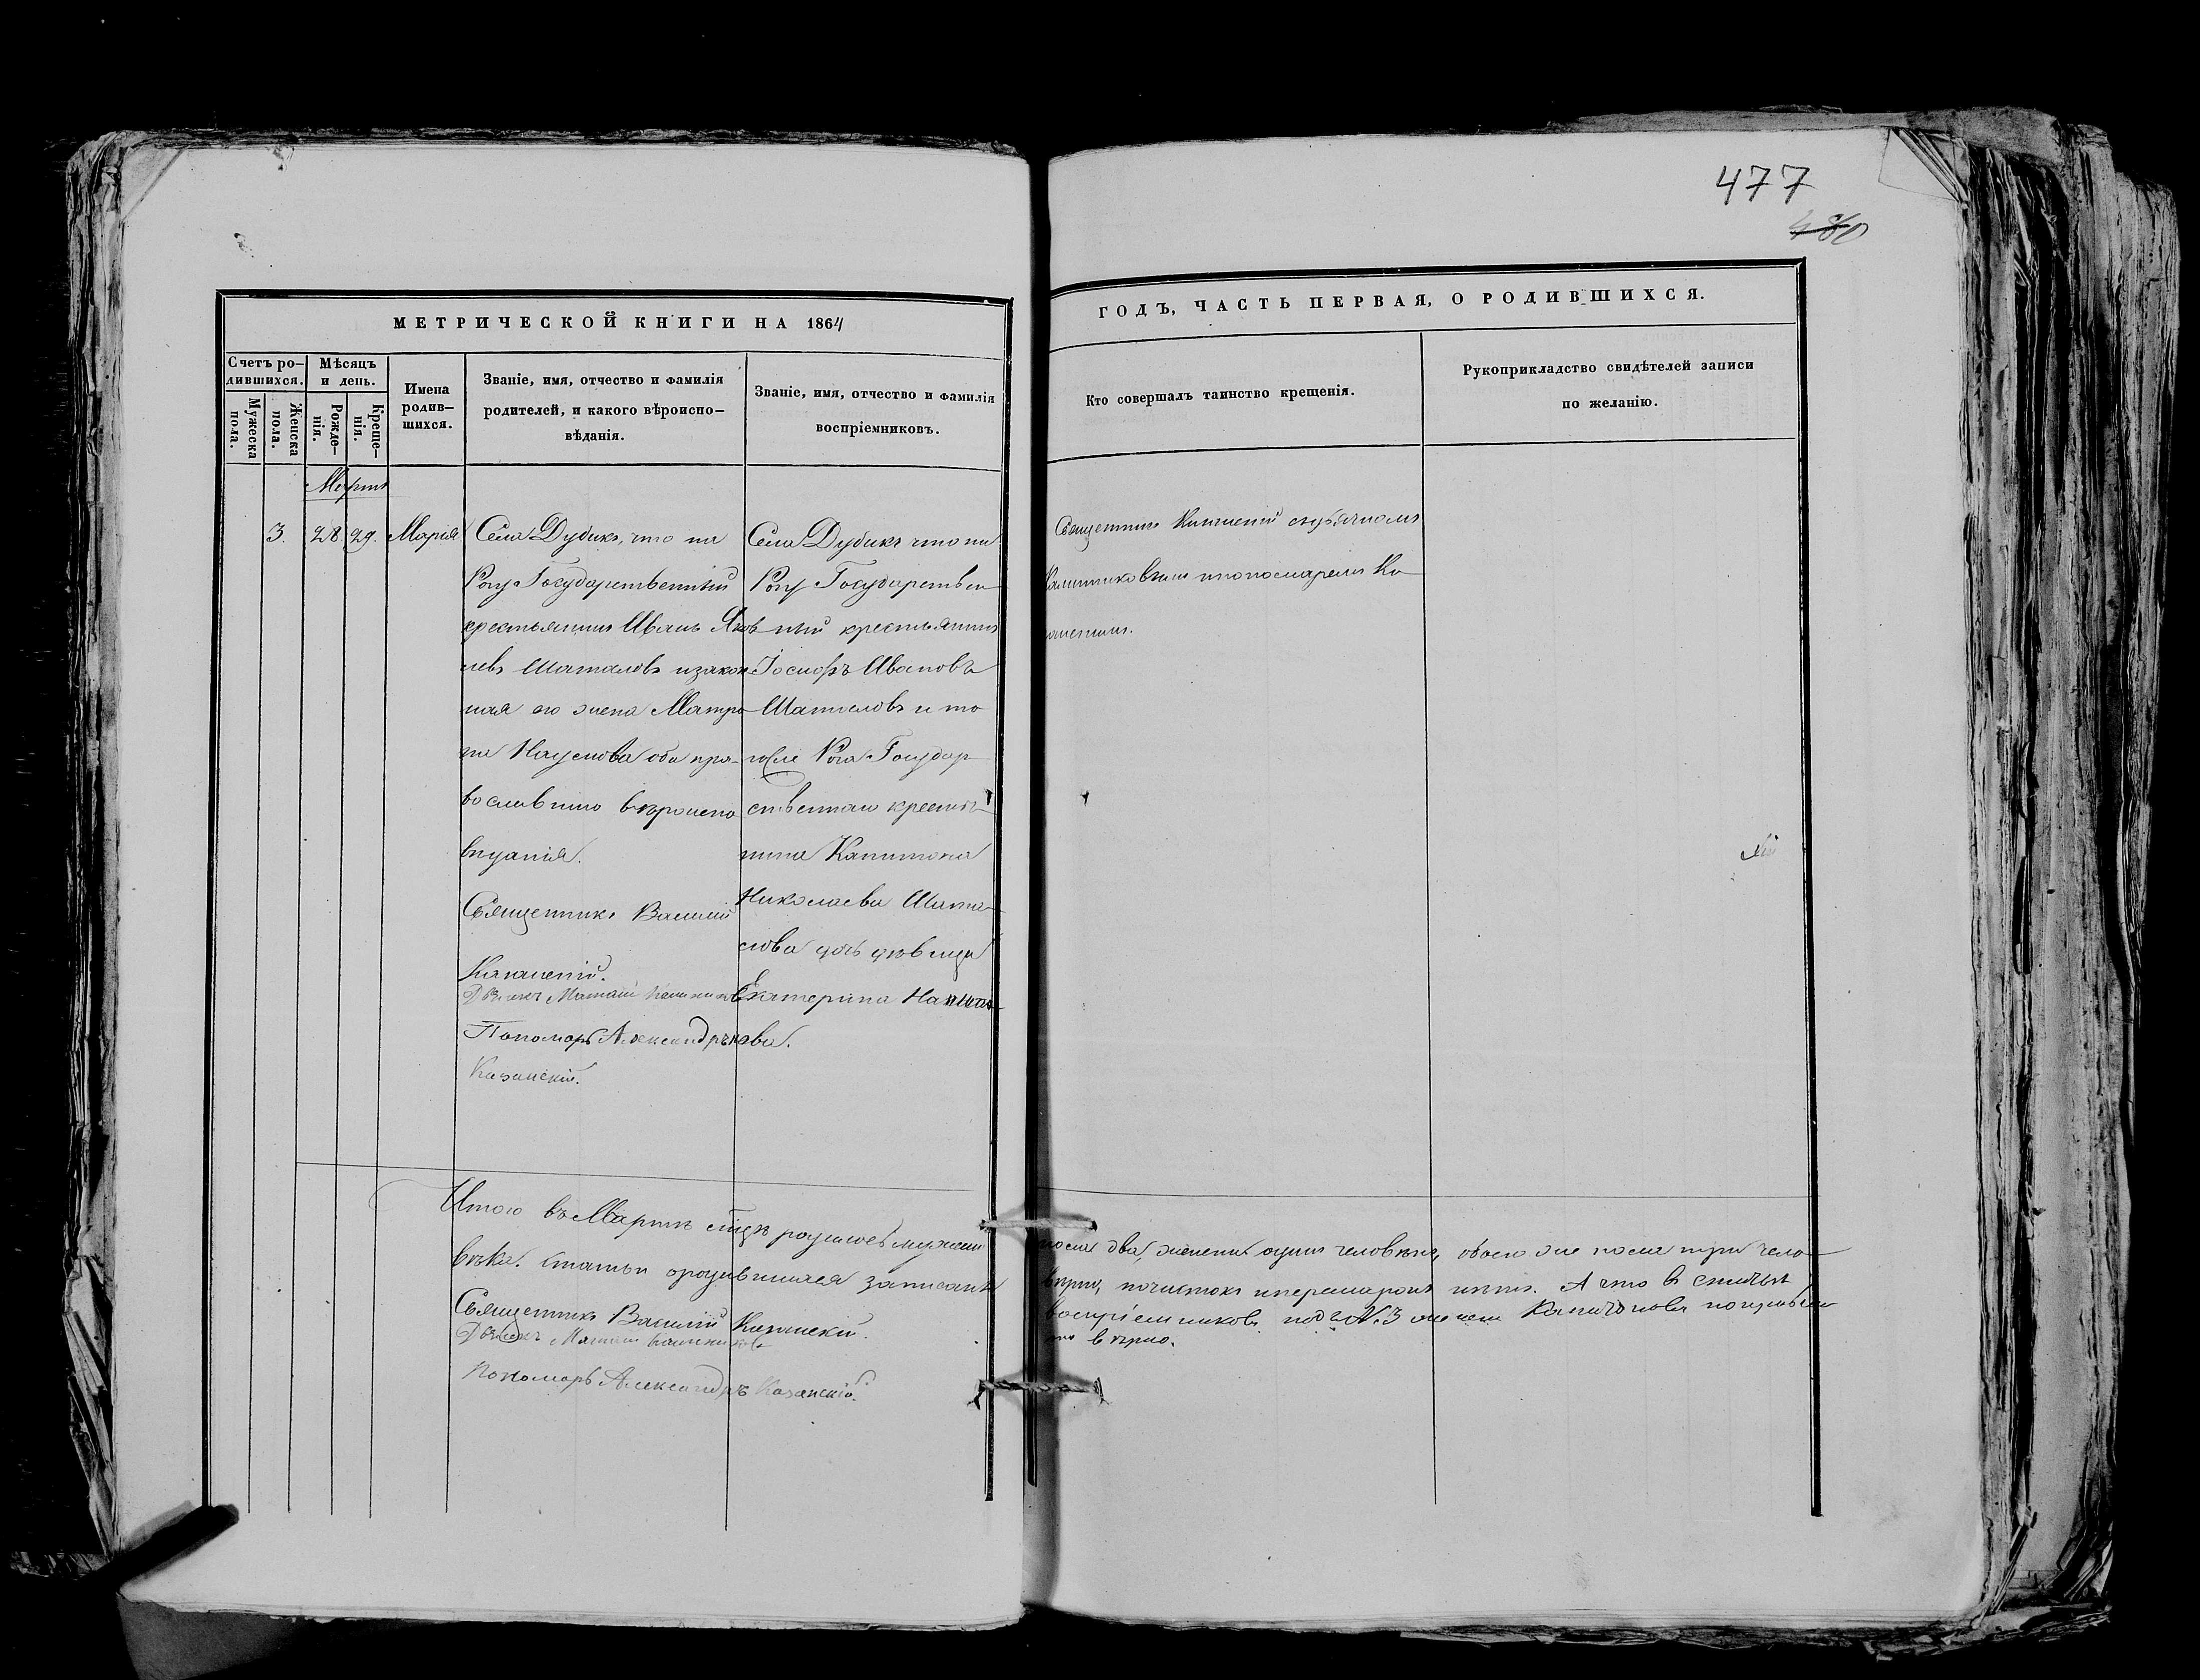 477
480
МЕТРИЧЕСКОЙ КНИГИ НА 1864
ГОДЪ, ЧАСТЬ ПЕРВАЯ, О РОДИВШИХСЯ.
Счетъ ро-
дившихся.
Мужеска
пола.
Женска
пола.
Мѣсяцъ
и день.
Рожде-
нія.
Креще-
нія.
Имена
родив-
шихся.
Званіе, имя, отчество и фамилія
родителей, и какого вѣроиспо-
вѣданія.
Званіе, имя, отчество и фамилія
воспріемниковъ.
Кто совершалъ таинство крещенія.
Рукоприкладство свидѣтелей записи
по желанію.
Мартъ
3.
28.
29.
Марія
Села Дубикъ, что на
Рогу Государственный
крестьянинъ Иванъ Яков
левъ Шаталовъ и закон
ная его жена Матро
на Наумова оба пра-
вославнаго вѣроиспо
вѣданія.
Священникъ Василій
Казанскій.
Дьячекъ
Пономарь Александръ
Казанскій.
Села Дубикъ что на
Рогу Государствен
ный крестьянинъ
Іосифъ Ивановъ
Шаталовъ и то
гоже Рога Государ
ственнаго крестья
нина Капитона
Николаева Шата
лова дочь дѣвица
Екатерина Капито
нова.
Священникъ Казанскій съ дьячкомъ
и пономаремъ Ка
занскимъ.
Итого въ Мартѣ мѣсяцѣ родилось мужеска
пола два, женска одинъ человѣкъ, обоего же пола три чело
вѣка. Статьи о родившихся записаны
вѣрно, почистокъ и перемарокъ нѣтъ. А что въ статьѣ
воспріемниковъ подъ №. 3 Капитонова поправлено
то вѣрно.
Священникъ Василій Казанскій.
Дьячекъ
Пономарь Александръ Казанскій.